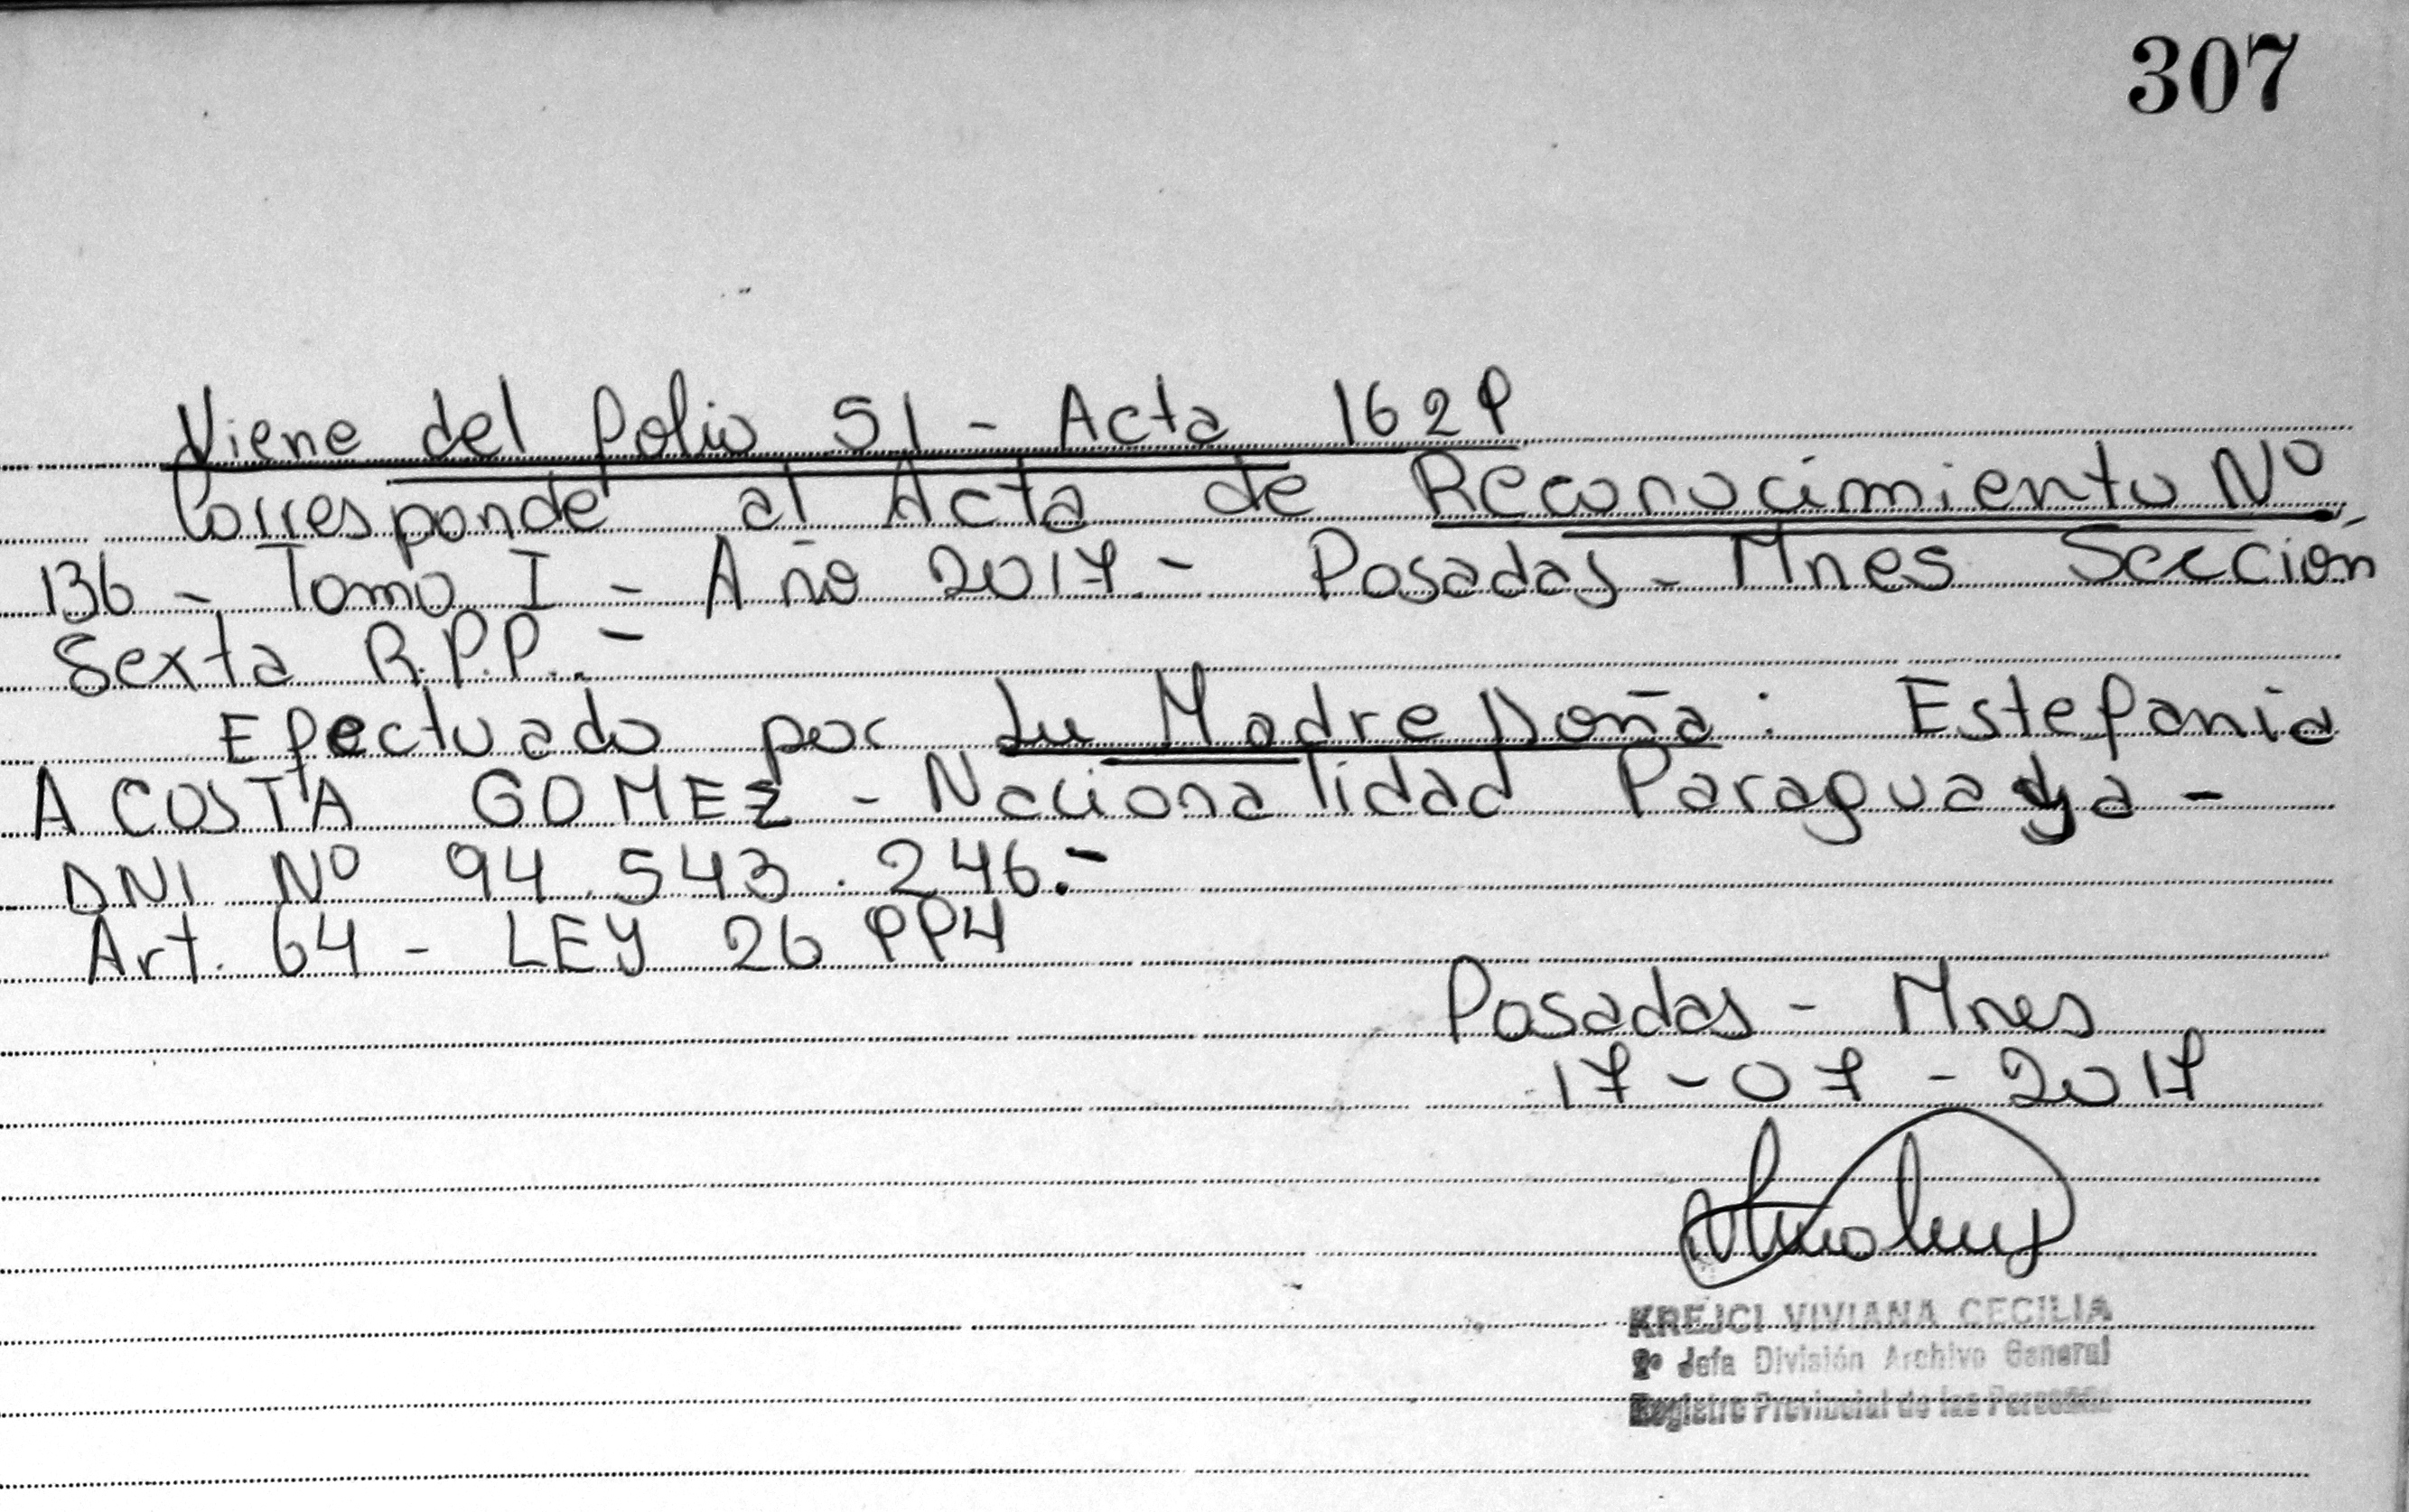 307
Viene del folio 51 - Acta 1629
Corresponde al Acta de Reconocimiento Nº
136 - Tomo I - Año 2017 - Posadas - Mnes Sección
Sexta R.P.P. -
Efectuado por su Madre Doña: Estefania
ACOSTA GOMEZ - Nacionalidad Paraguaya -
DNI Nº 94.543.246.-
Art. 64 - LEY 26994
Posadas - Mnes
17-07-2017
KREJCI VIVIANA CECILIA
2º Jefa División Archivo General
Registro Provincial de las Personas